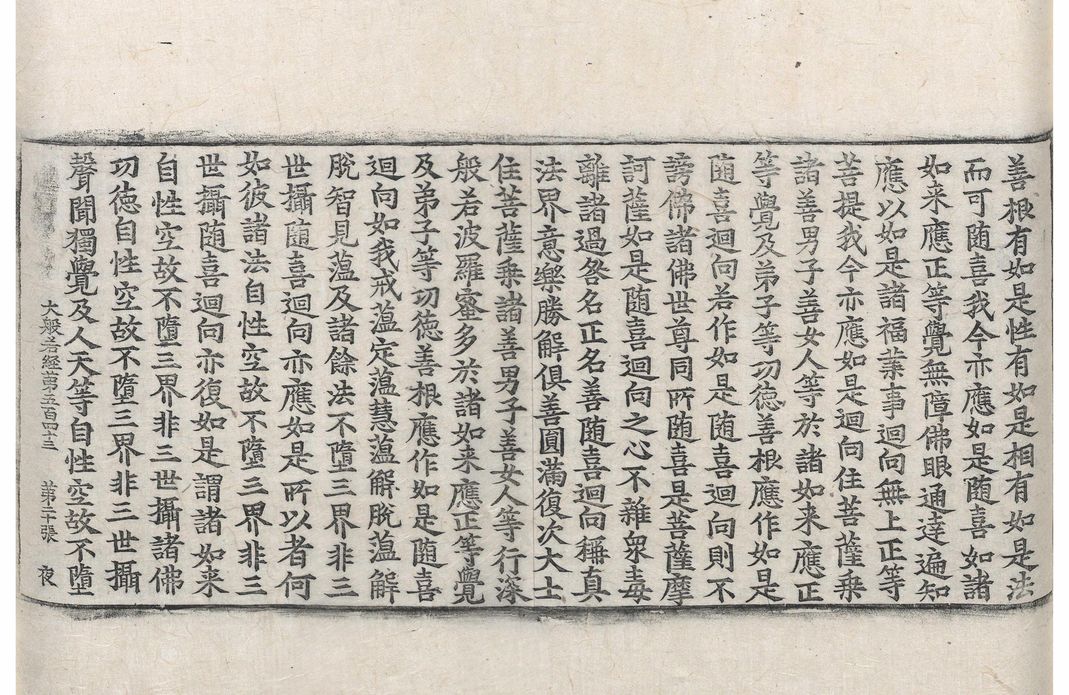 善根有如是性有如是相有如是法
而可随喜我今亦應如是随喜如諸
如来應正等覺無障佛眼通達遍知
應以如是諸福業事迴向無上正等
菩提我今亦應如是迴向住菩薩乗
諸善男子善女人等於諸如来應正
等覺及弟子等功徳善根應作如是
随喜迴向若作如是随喜迴向則不
謗佛諸佛世尊同所随喜是菩薩摩
訶薩如是随喜迴向之心不雜衆毒
離諸過咎名正名善随喜迴向稱真
法界意樂勝解俱善圓滿復次大士
住菩薩乗諸善男子善女人等行深
般若波羅蜜多於諸如来應正等覺
及弟子等功徳善根應作如是随喜
迴向如我戒藴定藴慧藴解脫藴解
脫智見藴及諸餘法不墮三界非三
世攝随喜迴向亦應如是所以者何
如彼諸法自性空故不墮三界非三
世攝随喜迴向亦復如是謂諸如来
自性空故不墮三界非三世攝諸佛
功徳自性空故不墮三界非三世攝
聲聞獨覺及人天等自性空故不墮
大般若経第五百四十三 第二十張 夜